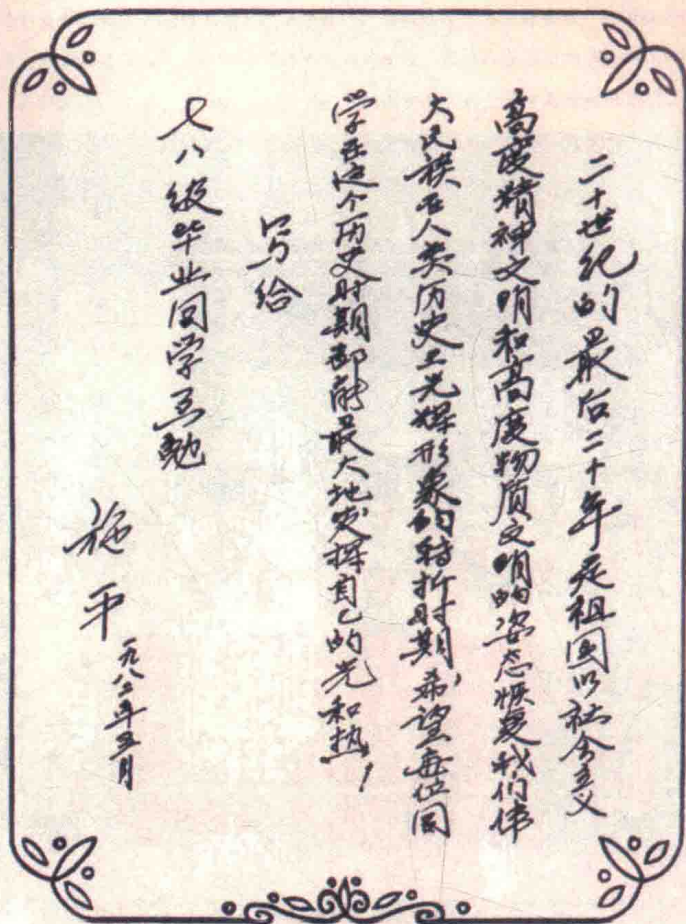 二十世纪的最后二十年是祖国以社会主义
高度精神文明和高度物质文明的姿态恢复我们伟
大民族在人类历史上光辉形象的转折时期，希望每位同
学在这个历史时期都能最大地发挥自己的光和热！
写给
七八级毕业同学互勉
施平
一九八二年五月